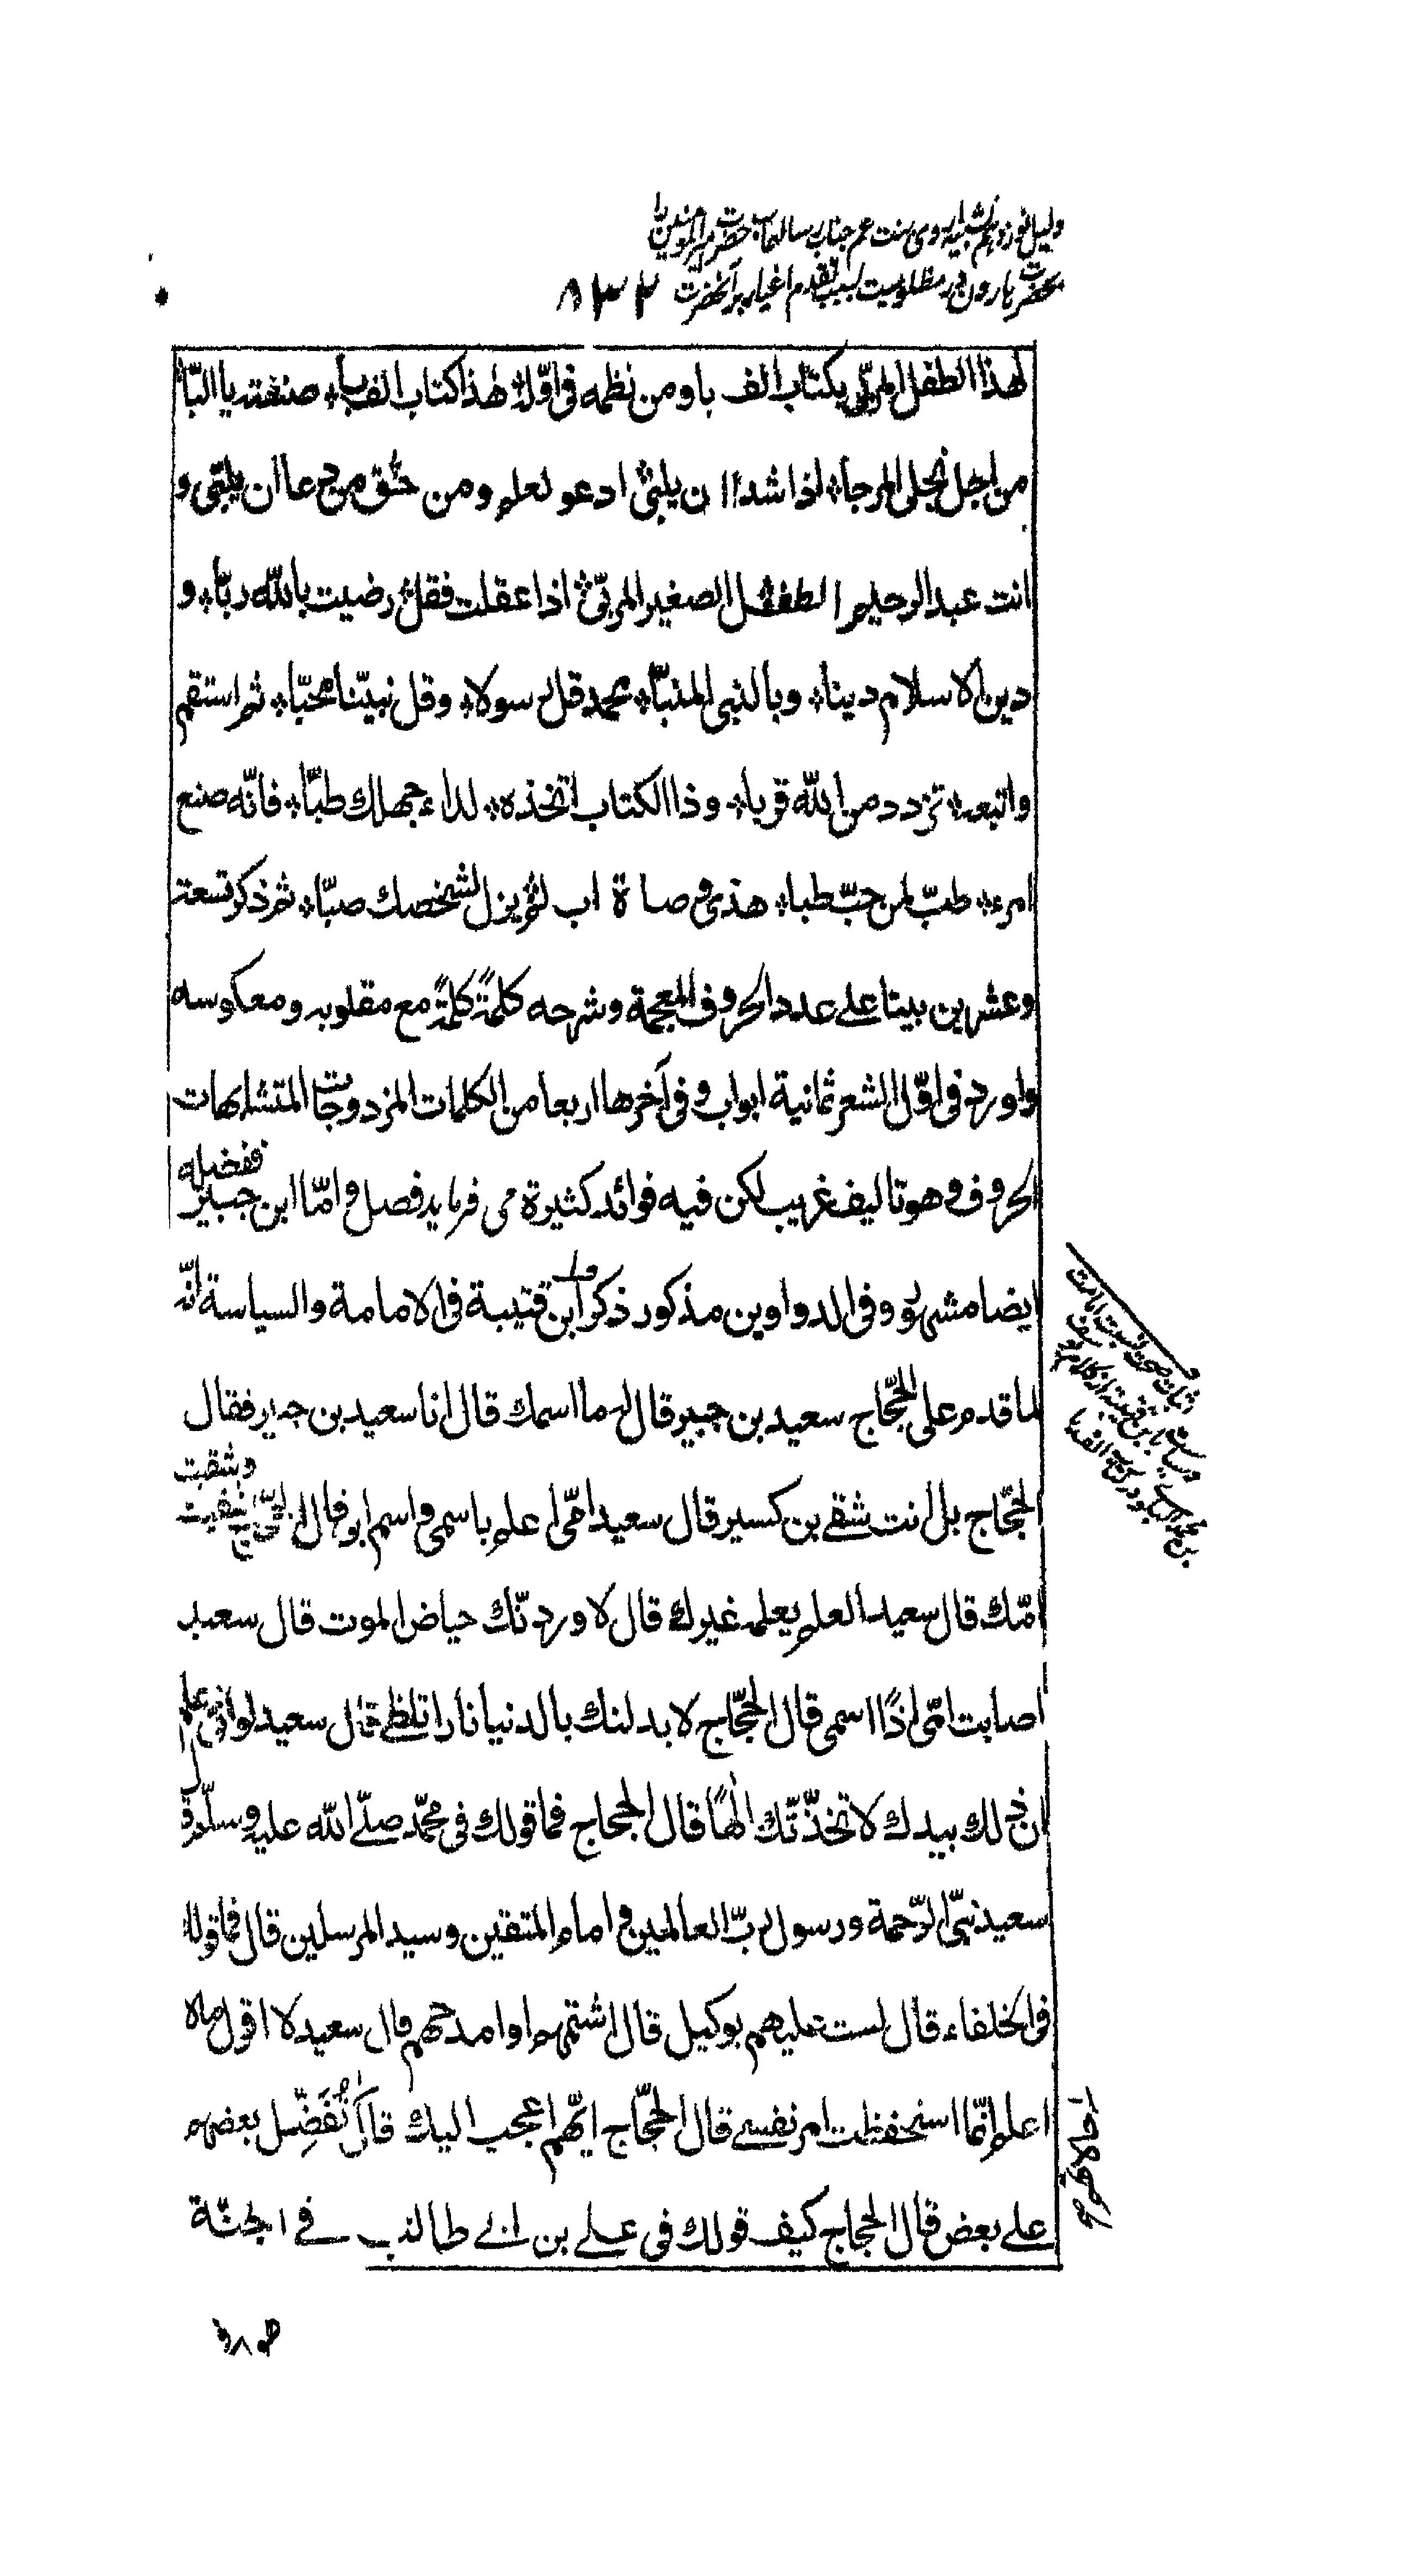 دلیل نوزدهم تشبیه روی سنت عم جناب رسالتمآب حضرت امیر المؤمنین را
بحضرت هارون در مظلومیت بسبب تقدم اغیار بر آنحضرت ۸۳۲
لهذا الطفل المربّی بکتاب الف با ومن نظمه فی اوّله هذا کتاب الف با صنفته یا البّا
من اجل نجلی المرجا اذا شدا ان یلبّی ادعو لعلم ومن حق من دعا ان یلبّی و
انت عبد الرحیم الطفل الصغیر المربّی اذا عقلت فقل رضیت بالله ربّا و
دین الاسلام دینا وبالنبی المنبّا محمد قل رسولا وقل نبیّنا محبّا ثم استقم
واتبعه تزدد من الله قربا وذا الکتاب اتخذه لداء جهلك طبّا فانّه صنع
امرء طبّ لمن حبّ طبا هذی وصاة اب لم یزل لشخصك صبّا ثم ذکر تسعة
وعشرین بیتا علی عدد الحروف المعجمة وشرحه کلمة کلمة مع مقلوبه ومعکوسه
واورد فی اوّل الشعر ثمانیة ابواب وفی آخرها اربعا من الکلمات المزدوجات المتشابهات
الحروف وهو تالیف غریب لکن فیه فوائد کثیرة می فرماید فصل وامّا ابن جبیر ففضله
ایضا مشهور وفی الدواوین مذکور ذکر ابن قتیبة فی الامامة والسیاسة انّه
لما قدم علی الحجّاج سعید بن جبیر قال له ما اسمك قال انا سعید بن جبیر فقال
الحجّاج بل انت شقی بن کسیر قال سعید امّی اعلم باسمی واسم ابی قال الحجّاج شقیت وشقیت
امّك قال سعید العلم یعلمه غیرك قال لاوردنّك حیاض الموت قال سعید
اصابت امّی اذًا اسمی قال الحجّاج لابدلنك بالدنیا نارا تلظی قال سعید لو انّی اعلم
ان ذلك بیدك لاتخذّتّك الٰهًا قال الحجاج فما قولك فی محمّد صلّی الله علیه وسلّم قال
سعید نبیّ الرّحمة ورسول ربّ العالمین وامام المتقین وسید المرسلین قال فما قولك
فی الخلفاء قال لست علیهم بوکیل قال اشتمهم او امدحهم قال سعید لا اقول ما لا
اعلم انّما استحفظت امر نفسی قال الحجّاج ایّهم اعجب الیك قال نُفَضِّل بعضهم
علی بعض قال الحجاج کیف قولك فی علی بن ابی طالب فی الجنّة